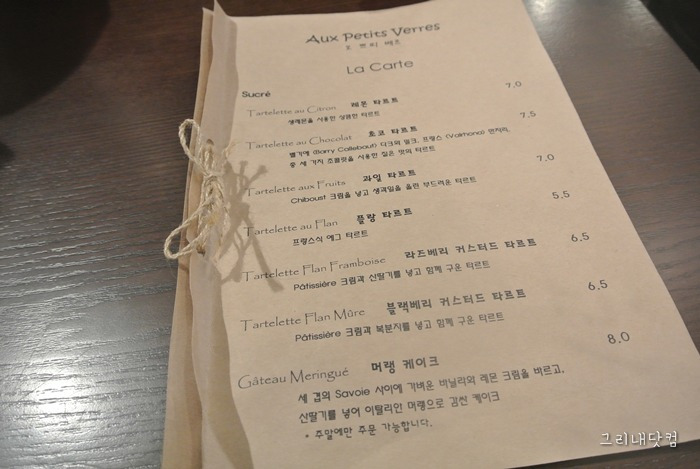 Aux Petits Verres
오 쁘띠 베르
La Carte
Sucré
Tartelette au Citron 레몬 타르트 7.0
생레몬을 사용한 상큼한 타르트
Tartelette au Chocolat 쵸코 타르트 7.5
벨기에 (Barry Callebaut) 다크와 밀크, 프랑스 (Valrhona) 만자리,
총 세 가지 초콜릿을 사용한 짙은 맛의 타르트
Tartelette aux Fruits 과일 타르트 7.0
Chiboust 크림을 넣고 생과일을 올린 부드러운 타르트
Tartelette au Flan 플랑 타르트 5.5
프랑스식 에그 타르트
Tartelette Flan Framboise 라즈베리 커스터드 타르트 6.5
Pâtissière 크림과 산딸기를 넣고 함께 구운 타르트
Tartelette Flan Mûre 블랙베리 커스터드 타르트 6.5
Pâtissière 크림과 복분자를 넣고 함께 구운 타르트
Gâteau Meringué 머랭 케이크 8.0
세 겹의 Savoie 사이에 가벼운 바닐라와 레몬 크림을 바르고,
산딸기를 넣어 이탈리안 머랭으로 감싼 케이크
* 주말에만 주문 가능합니다.
그리내닷컴